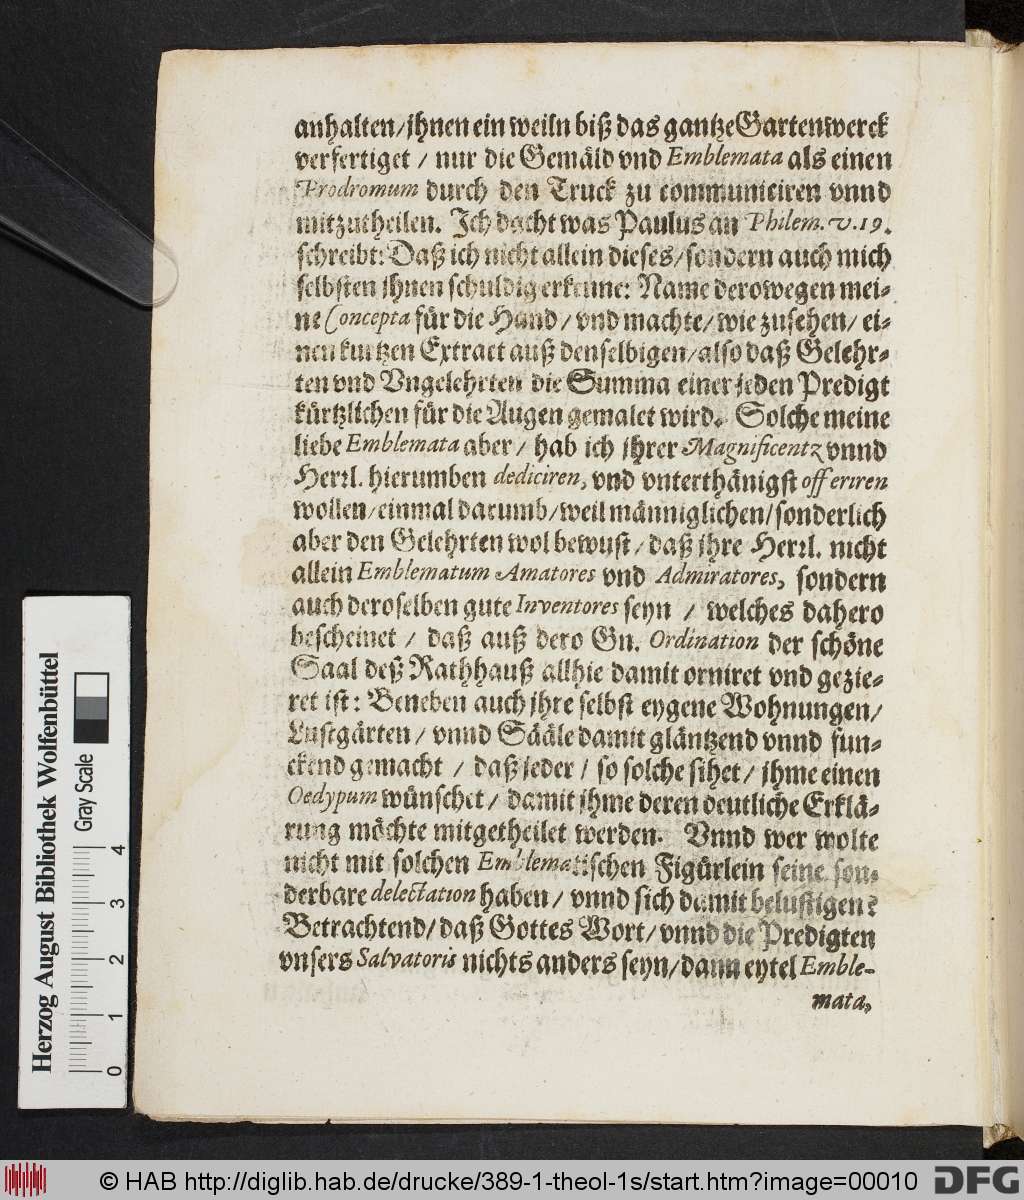 anhalten/jhnen ein weiln biß das gantze Gartenwerck
verfertiget / nur die Gemäld vnd Emblemata als einen
Prodromum durch den Truck zu communiciren vnnd
mitzutheilen. Ich dacht was Paulus an Philem. v. 19.
schreibt: Daß ich nicht allein dieses/sondern auch mich
selbsten jhnen schuldig erkenne: Name derowegen mei-
ne Concepta für die Hand / vnd machte/ wie zusehen/ ei-
nen kurtzen Extract auß denselbigen/also daß Gelehr-
ten vnd Vngelehrten die Summa einer jeden Predigt
kürtzlichen für die Augen gemalet wird. Solche meine
liebe Emblemata aber / hab ich jhrer Magnificentz vnnd
Herrl. hierumben dediciren, vnd vnterthänigst offeriren
wollen/einmal darumb/weil männiglichen/sonderlich
aber den Gelehrten wol bewust/ daß jhre Herrl. nicht
allein Emblematum Amatores vnd Admiratores, sondern
auch deroselben gute Inventores seyn / welches dahero
bescheinet / daß auß dero Gn. Ordination der schöne
Saal deß Rathhauß allhie damit orniret vnd gezie-
ret ist: Beneben auch jhre selbst eygene Wohnungen/
Lustgärten / vnnd Sääle damit gläntzend vnnd fun-
ckend gemacht / daß jeder / so solche sihet/ jhme einen
Oedypum wünschet / damit jhme deren deutliche Erklä-
rung möchte mitgetheilet werden. Vnnd wer wolte
nicht mit solchen Emblematischen Figürlein seine son-
derbare delectation haben / vnnd sich damit belustigen?
Betrachtend/ daß Gottes Wort/ vnnd die Predigten
vnsers Salvatoris nichts anders seyn/dann eytel Emble-
mata,
Herzog August Bibliothek Wolfenbüttel
Gray Scale
0 1 2 3 4
© HAB http://diglib.hab.de/drucke/389-1-theol-1s/start.htm?image=00010
DFG